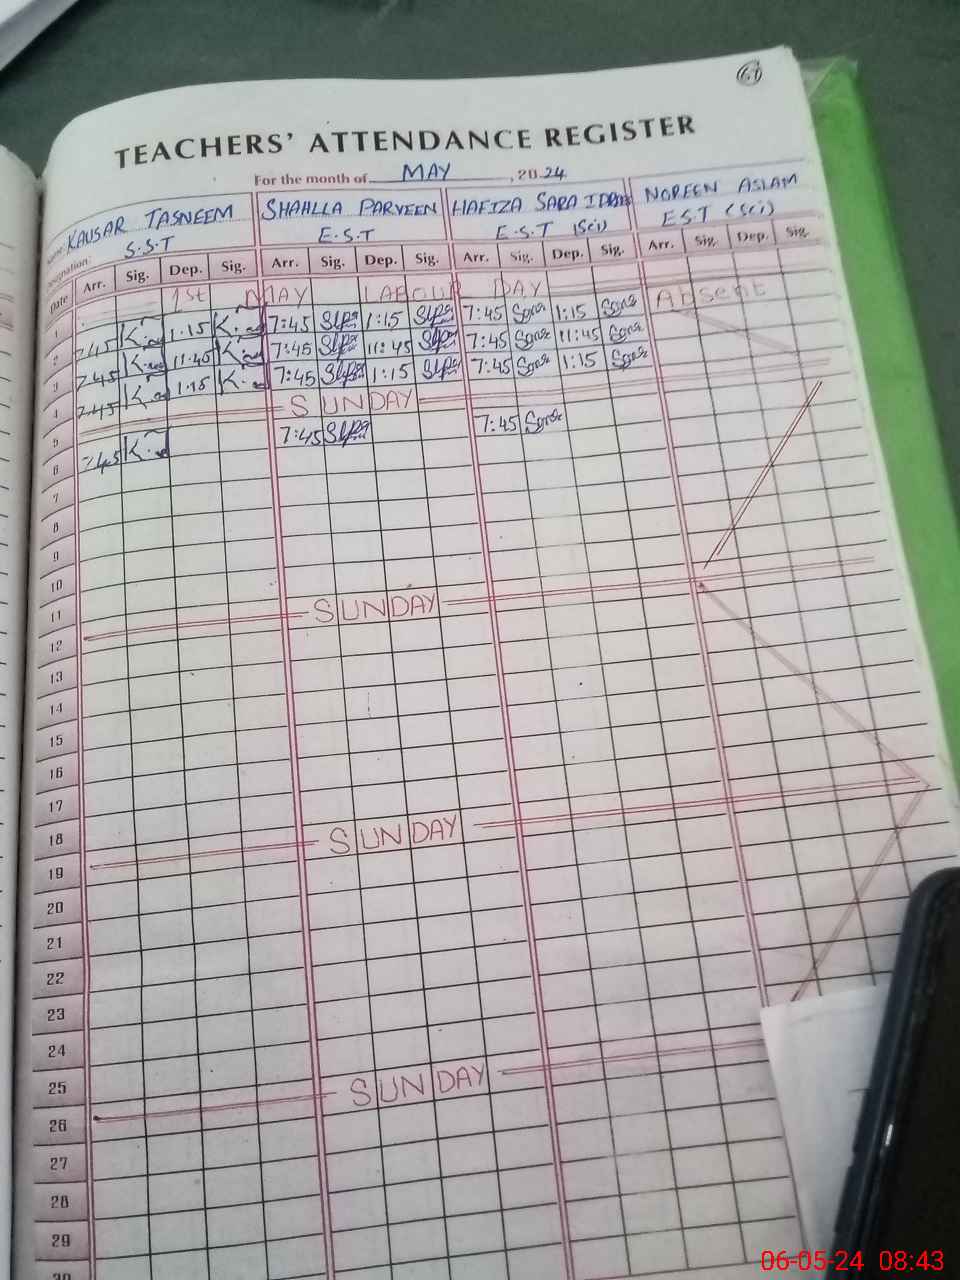 67
TEACHERS' ATTENDANCE REGISTER
For the month of MAY, 2024
Name: KAUSAR TASNEEM SHAHLLA PARVEEN HAFIZA SARA NOREEN ASLAM
Designation: S.S.T E.S.T E.S.T (Sci) E.S.T (Sci)
Date Arr. Sig. Dep. Sig. Arr. Sig. Dep. Sig. Arr. Sig. Dep. Sig. Arr. Sig. Dep. Sig.
1 1st MAY LABOUR DAY Absent
2 7:45 1:15 7:45 1:15 7:45 Sara 1:15 Sara
3 7:45 11:45 7:45 11:45 7:45 Sara 11:45 Sara
4 7:45 1:15 7:45 1:15 7:45 Sara 1:15 Sara
5 SUNDAY
6 7:45 7:45 7:45 Sara
7
8
9
10
11
12 SUNDAY
13
14
15
16
17
18
19 SUNDAY
20
21
22
23
24
25
26 SUNDAY
27
28
29
30
06-05-24 08:43